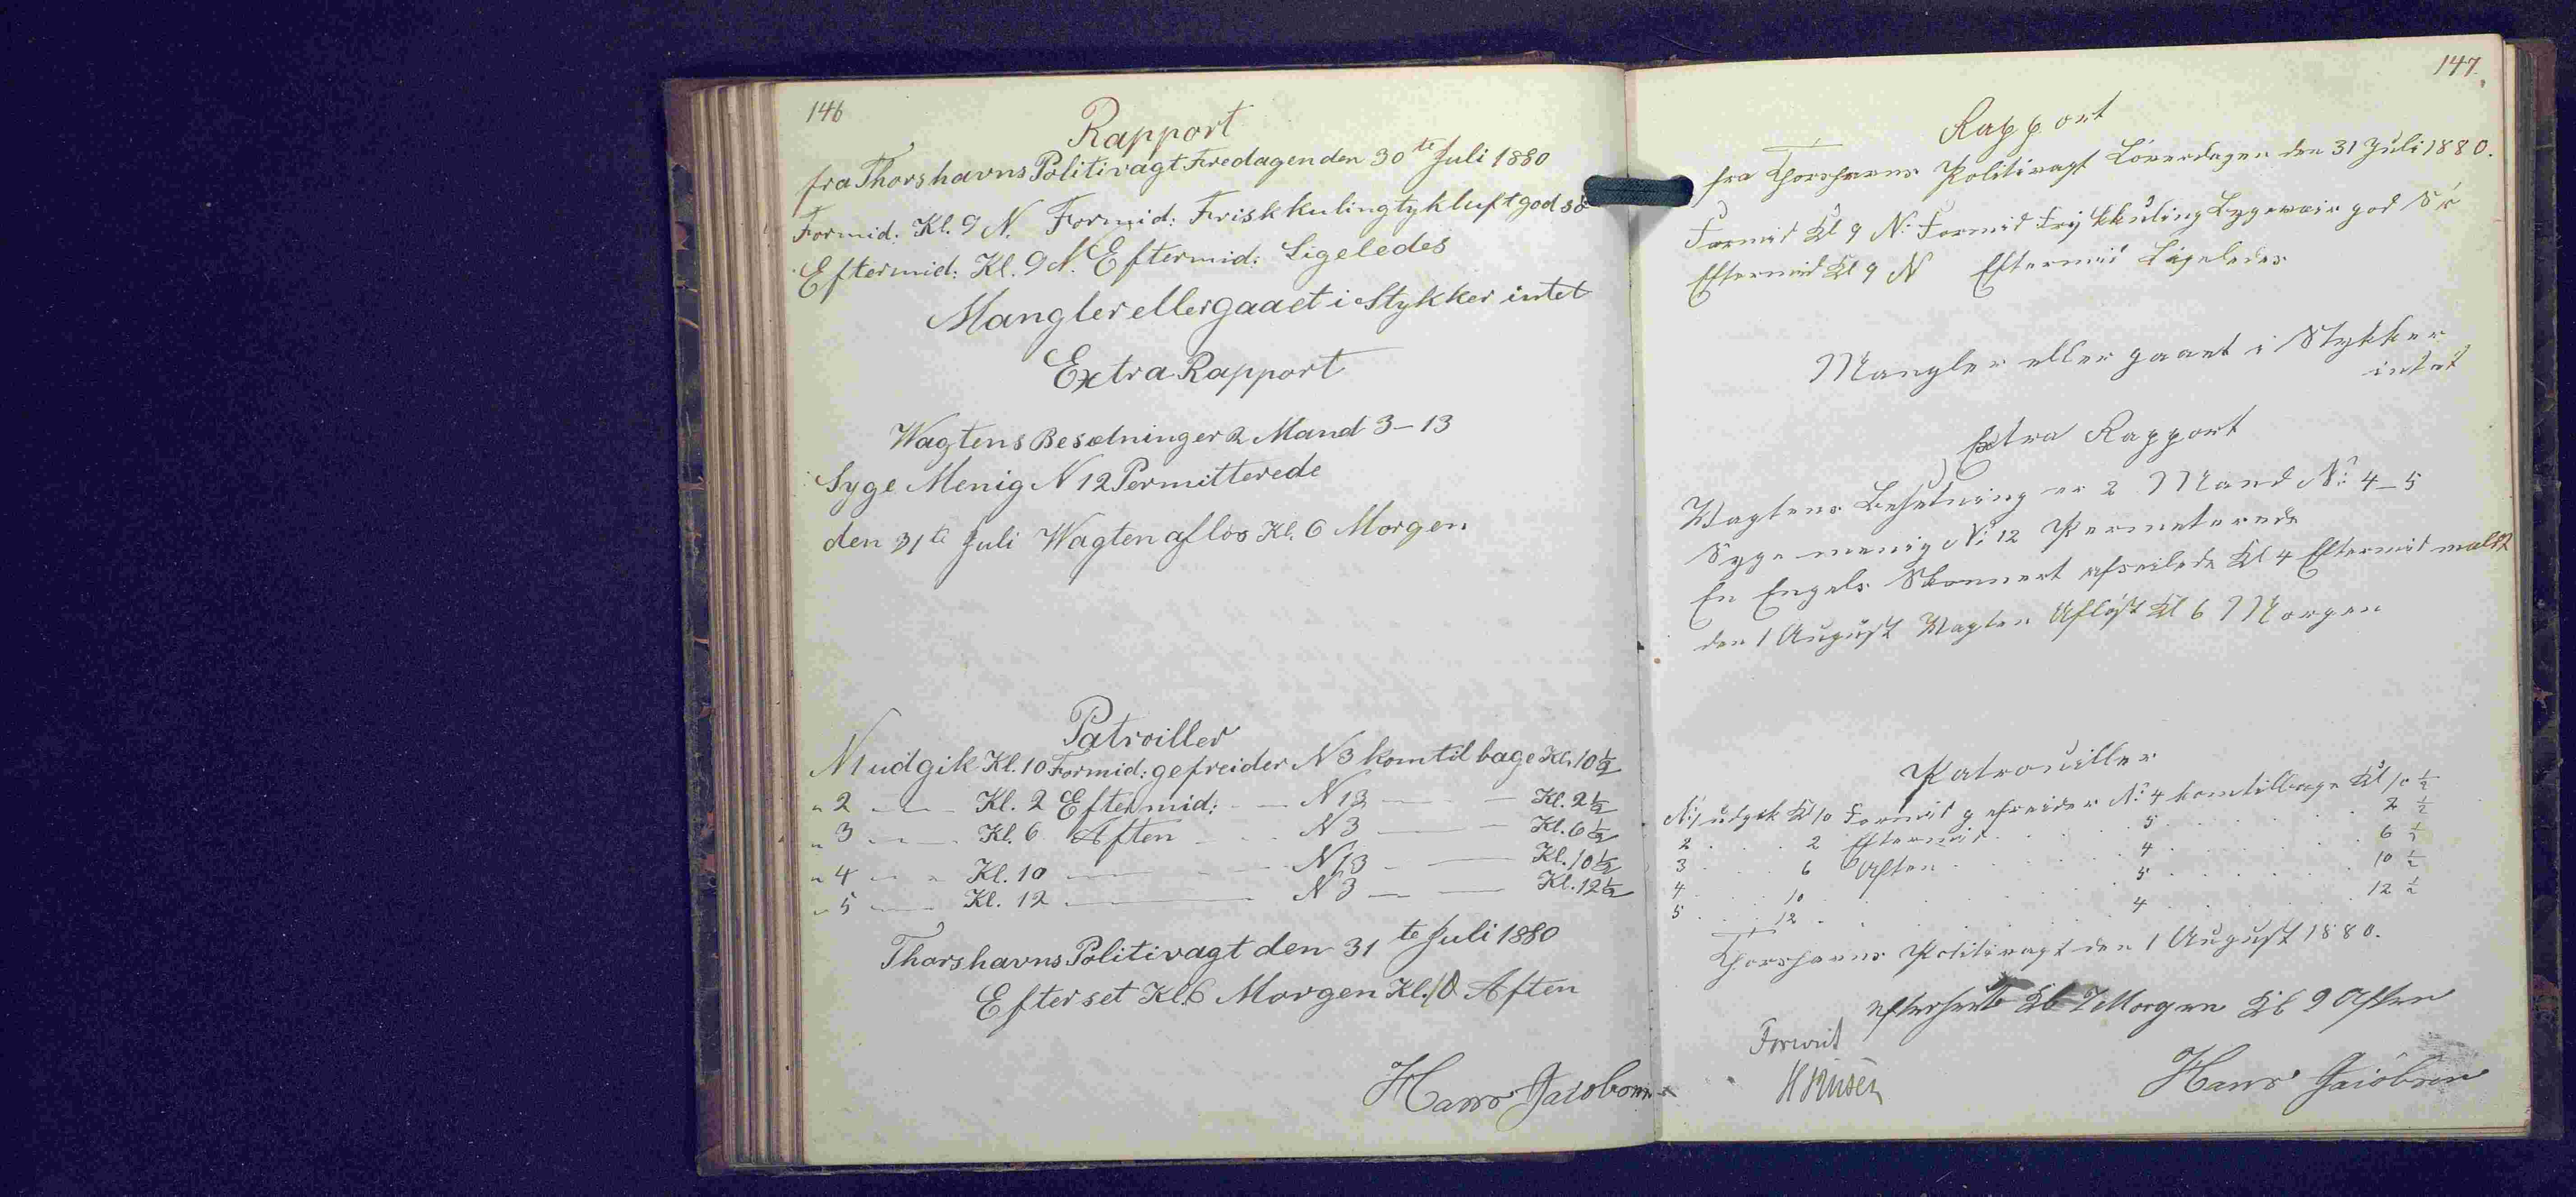 146
Rapport
fra Thorshavns Politivagt Fredagen den 30te Juli 1880
Formid. Kl. 9 N. Formid: Frisk kuling tykluft god sö
Eftermid: Kl. 9 N. Eftermid: Ligeledes
Mangler eller gaaet i Stykker intet
Extra Rapport
Wagtens Besætninger 2 Mand 3-13
Syge Menig N 12 Permitterede
den 31te Juli Wagten aflos Kl. 6 Morgen
Patroiller
N 1 udgik Kl. 10 Formid: gefreider N 3 kom til bage Kl. 10 ½
" 2 — Kl. 2 Eftermid: — N 13 — Kl. 2 ½
" 3 — Kl. 6 Aften — N 3 — Kl. 6 ½
" 4 — Kl. 10 — N 13 — Kl. 10 ½
" 5 — Kl. 12 — N 3 — Kl. 12 ½
Thorshavns Politivagt den 31te Juli 1880
Efterset Kl. 6 Morgen Kl. 10 Aften
Hans Jacobsen
147.
Rapport
fra Thorshavns Politivagt Löverdagen den 31 Juli 1880.
Formid Kl 9 N: Formid Frijskkuling god
Eftermid Kl 9 N Eftermid Ligeledes
Mangler eller gaaet i Stykker
intet
Extra Rapport
Wagtens Besetning er 2 Mand N: 4-5
Syge menig N: 12 Permeterede
En Engels Skonnert afseilede Kl 4 Eftermid
den 1 August Wagten Aflöst Kl 6 Morgen
Patrouiller
N: 1 udgik Kl 10 Formid gefreider N: 4 kom tilbage Kl 10 ½
2 . . . 2 Eftermid . . . 5 . . . 2 ½
3 . . . 6 Aften . . . 4 . . . 6 ½
4 . . . 10 . . . 5 . . . 10 ½
5 . . . 12 . . . 4 . . . 12 ½
Thorshavns Politivagt den 1 August 1880.
efterseet Kl 7 Morgen Kl 9 Aften
Hans Jacobsen